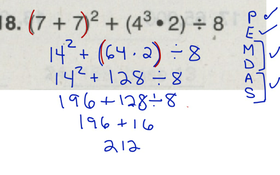 18. (7 + 7)² + (4³ • 2) ÷ 8
14² + (64 · 2) ÷ 8
14² + 128 ÷ 8
196 + 128 ÷ 8
196 + 16
212
P ✓
E ✓
M
D ✓
A
S ✓